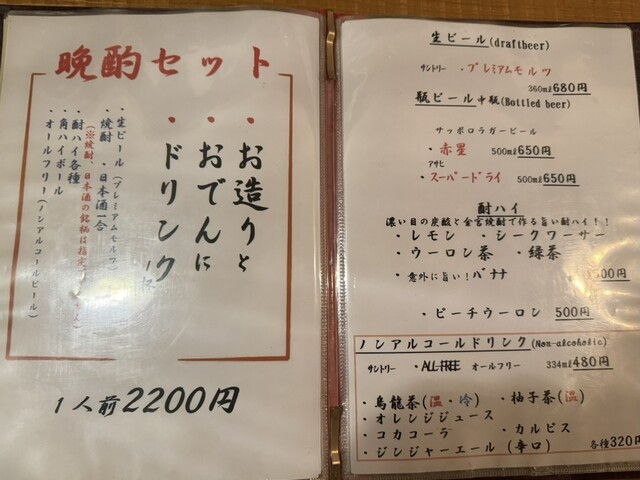 晩酌セット
・お造りと
・おでんに
・ドリンク
・生ビール（プレミアムモルツ）
・焼酎　・日本酒一合
・酎ハイ各種
・角ハイボール
・オールフリー（ノンアルコールビール）
1人前2200円
生ビール(draftbeer)
サントリー ・プレミアムモルツ
360ml680円
瓶ビール中瓶(Bottled beer)
サッポロラガービール
・赤星 500ml650円
アサヒ
・スーパードライ 500ml650円
酎ハイ
濃い目の炭酸と金宮焼酎で作る旨い酎ハイ！！
・レモン ・シークワーサー
・ウーロン茶 ・緑茶
・意外に旨い！バナナ
・ピーチウーロン 500円
ノンアルコールドリンク(Non-alcoholic)
サントリー ・ALL-FREE オールフリー 334ml480円
・烏龍茶(温・冷) ・柚子茶(温)
・オレンジジュース
・コカコーラ ・カルピス
・ジンジャーエール(辛口) 各種320円